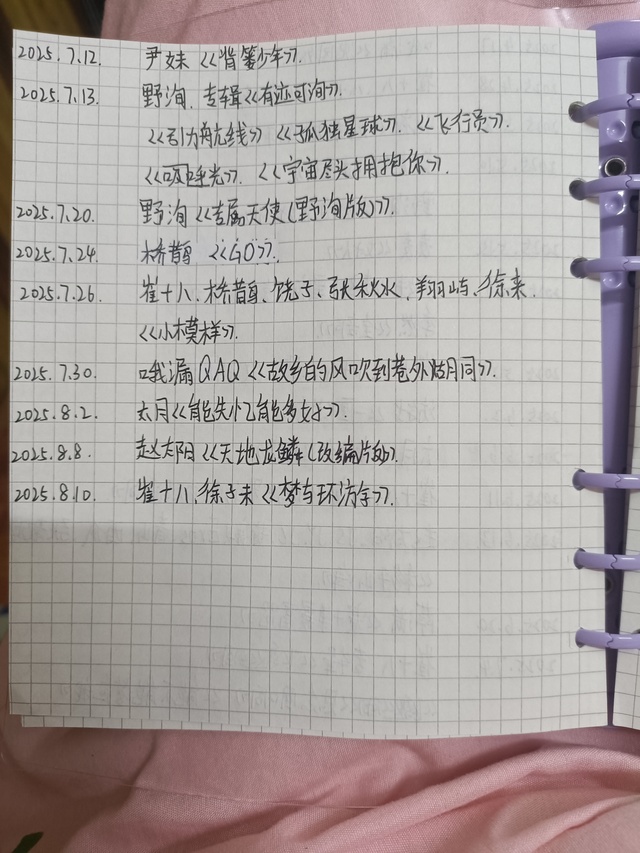 2025.7.12. 尹姝《背篓少年》.
2025.7.13. 野洵. 专辑《有迹可洵》.
《引力航线》《孤独星球》.《飞行员》.
《吸呼光》.《宇宙尽头拥抱你》.
2025.7.20. 野洵《专属天使(野洵版)》.
2025.7.24. 桥鹊 《GO》.
2025.7.26. 崔十八、桥鹊、饶子、张秋水、翔屿、徐来.
《小模样》.
2025.7.30. 哦漏QAQ《故乡的风吹到巷外胡同》.
2025.8.2. 太月《能失忆能多好》.
2025.8.8. 赵太阳《天地龙鳞(改编版)》.
2025.8.10. 崔十八、徐子未《梦与环游令》.